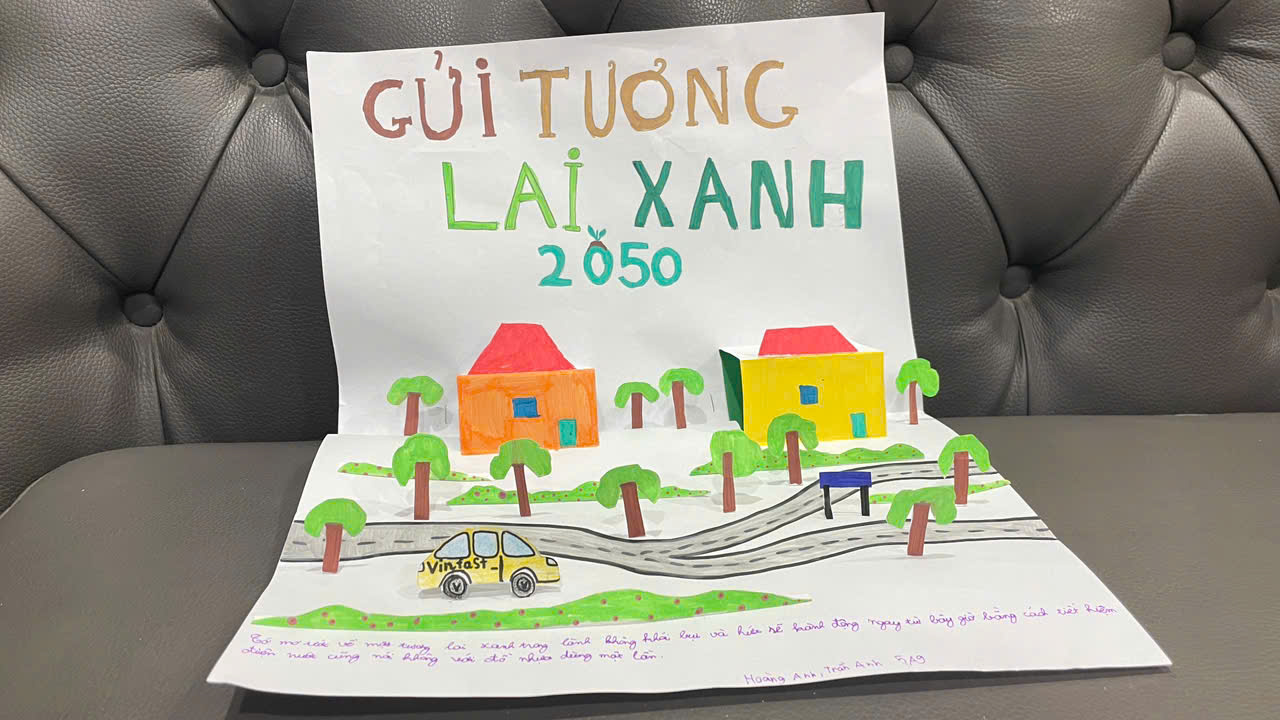 GỬI TƯƠNG
LAI XANH
2050
Vinfast
Tớ mơ ước về một tương lai xanh trong lành không khói bụi và hứa sẽ hành động ngay từ bây giờ bằng cách tiết kiệm
điện nước cũng nói không với đồ nhựa dùng một lần.
Hoàng Anh, Trần Anh 5A9